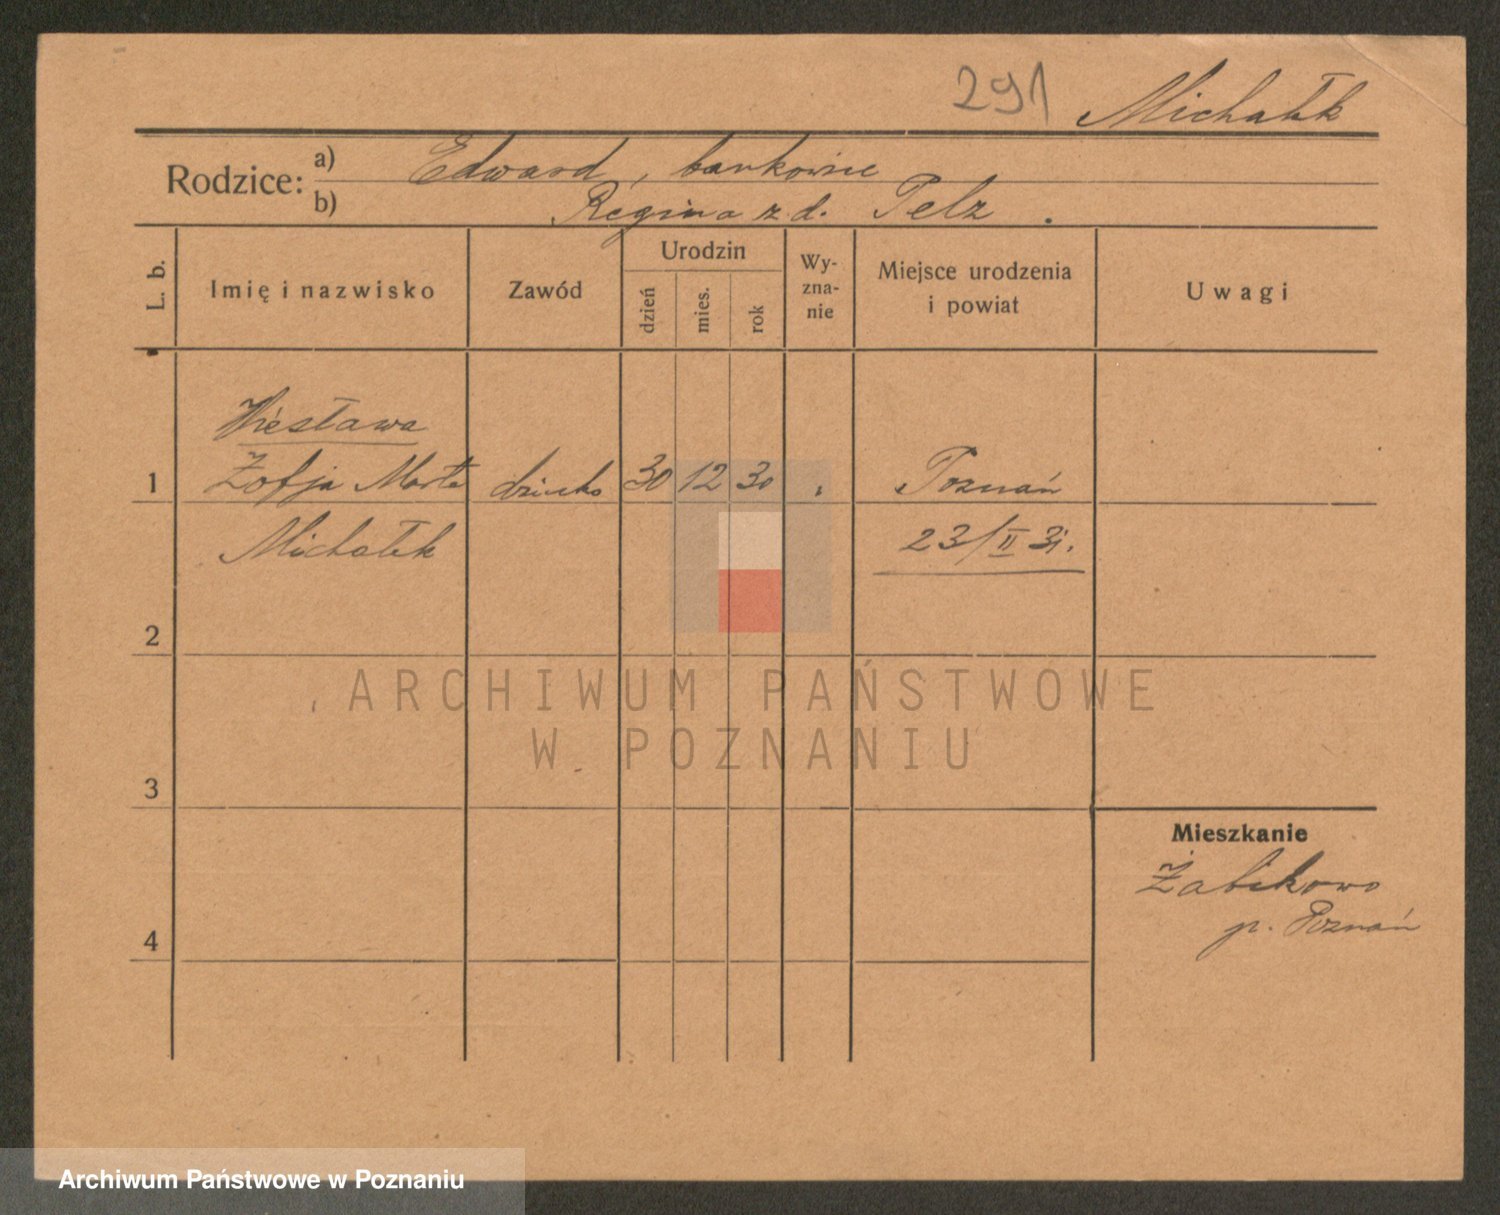 291 Michałek
Rodzice: a) Edward, bankowiec
b) Regina z d. Pelz.
L. b. Imię i nazwisko Zawód Urodzin dzień mies. rok Wy-zna-nie Miejsce urodzenia i powiat Uwagi
Wiesława
1 Zofja Marta dziecko 30 12 30 Poznań
Michałek 23/II 31.
2
ARCHIWUM PAŃSTWOWE
W POZNANIU
3
Mieszkanie
Żabikowo
p. Poznań
4
Archiwum Państwowe w Poznaniu